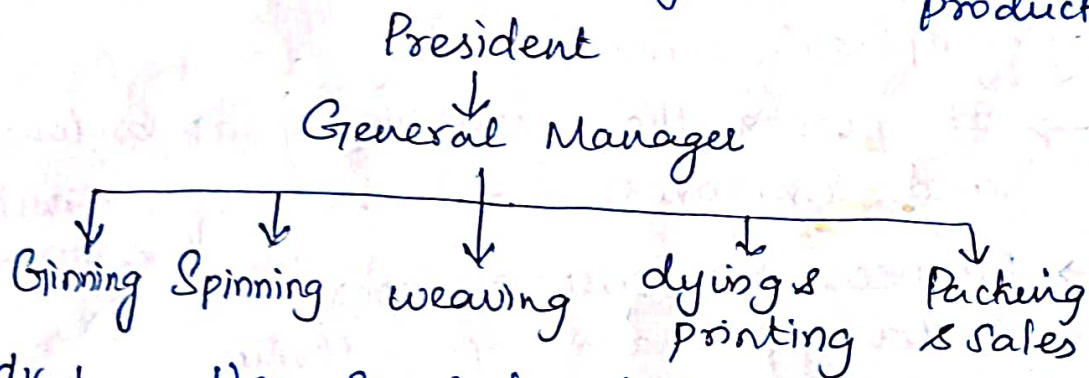 product
President
General Manager
Ginning Spinning weaving dying & Packing
printing & Sales